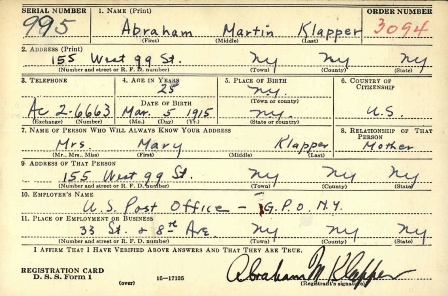 SERIAL NUMBER 1. NAME (Print) ORDER NUMBER
995 Abraham Martin Klapper 3094
(First) (Middle) (Last)
2. ADDRESS (Print)
155 West 99 St. NY NY NY
(Number and street or R. F. D. number) (Town) (County) (State)
3. TELEPHONE 4. AGE IN YEARS 5. PLACE OF BIRTH 6. COUNTRY OF CITIZENSHIP
25 NY.
DATE OF BIRTH (Town or county)
Ac 2-6663 Mar. 5 1915 NY. U.S.
(Exchange) (Number) (Mo.) (Day) (Yr.) (State or country)
7. NAME OF PERSON WHO WILL ALWAYS KNOW YOUR ADDRESS 8. RELATIONSHIP OF THAT PERSON
Mrs. Mary Klapper Mother
(Mr., Mrs., Miss) (First) (Middle) (Last)
9. ADDRESS OF THAT PERSON
155 West 99 St. NY NY NY
(Number and street or R. F. D. number) (Town) (County) (State)
10. EMPLOYER'S NAME
U.S. Post Office - G.P.O. N.Y.
11. PLACE OF EMPLOYMENT OR BUSINESS
33 St. & 8th Ave. NY NY NY
(Number and street or R. F. D. number) (Town) (County) (State)
I AFFIRM THAT I HAVE VERIFIED ABOVE ANSWERS AND THAT THEY ARE TRUE.
REGISTRATION CARD
D. S. S. Form 1 (over) 16-17105 Abraham M. Klapper
(Registrant's signature)